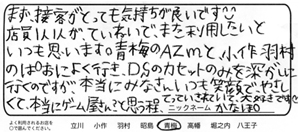 まず、接客がとっても気持ちが良いです
店員1人1人が、ていねいで、また利用したいと
いつも思います。青梅のAZmと、小作、羽村
のはよく行き、DSのカセットのみを深がしに
行くのですが、本当にみなさん、いつも笑顔でやさし
くて、本当にゲーム屋さん?て思う程、ていねいで大好きです
よく利用されるお店を
○で囲んでください。 立川 小作 羽村 昭島 青梅 高幡 堀之内 八王子
ニックネーム かなぽん